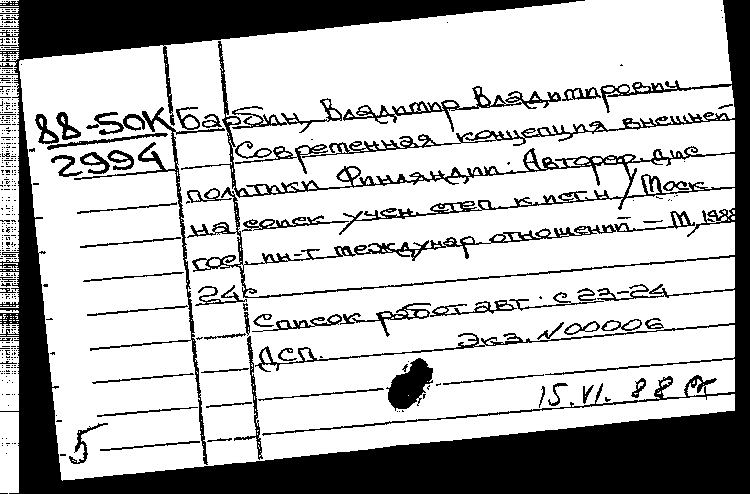 88-50К Барбин, Владимир Владимирович
2994 Современная концепция внешней
политики Финляндии: Автореф. дис
на соиск учен. степ. к.ист.н / Моск
гос. ин-т междунар. отношений. – М, 1988
24с
Список работ авт. с 23-24
ДСП. Экз. N00006
15.VI. 88
5